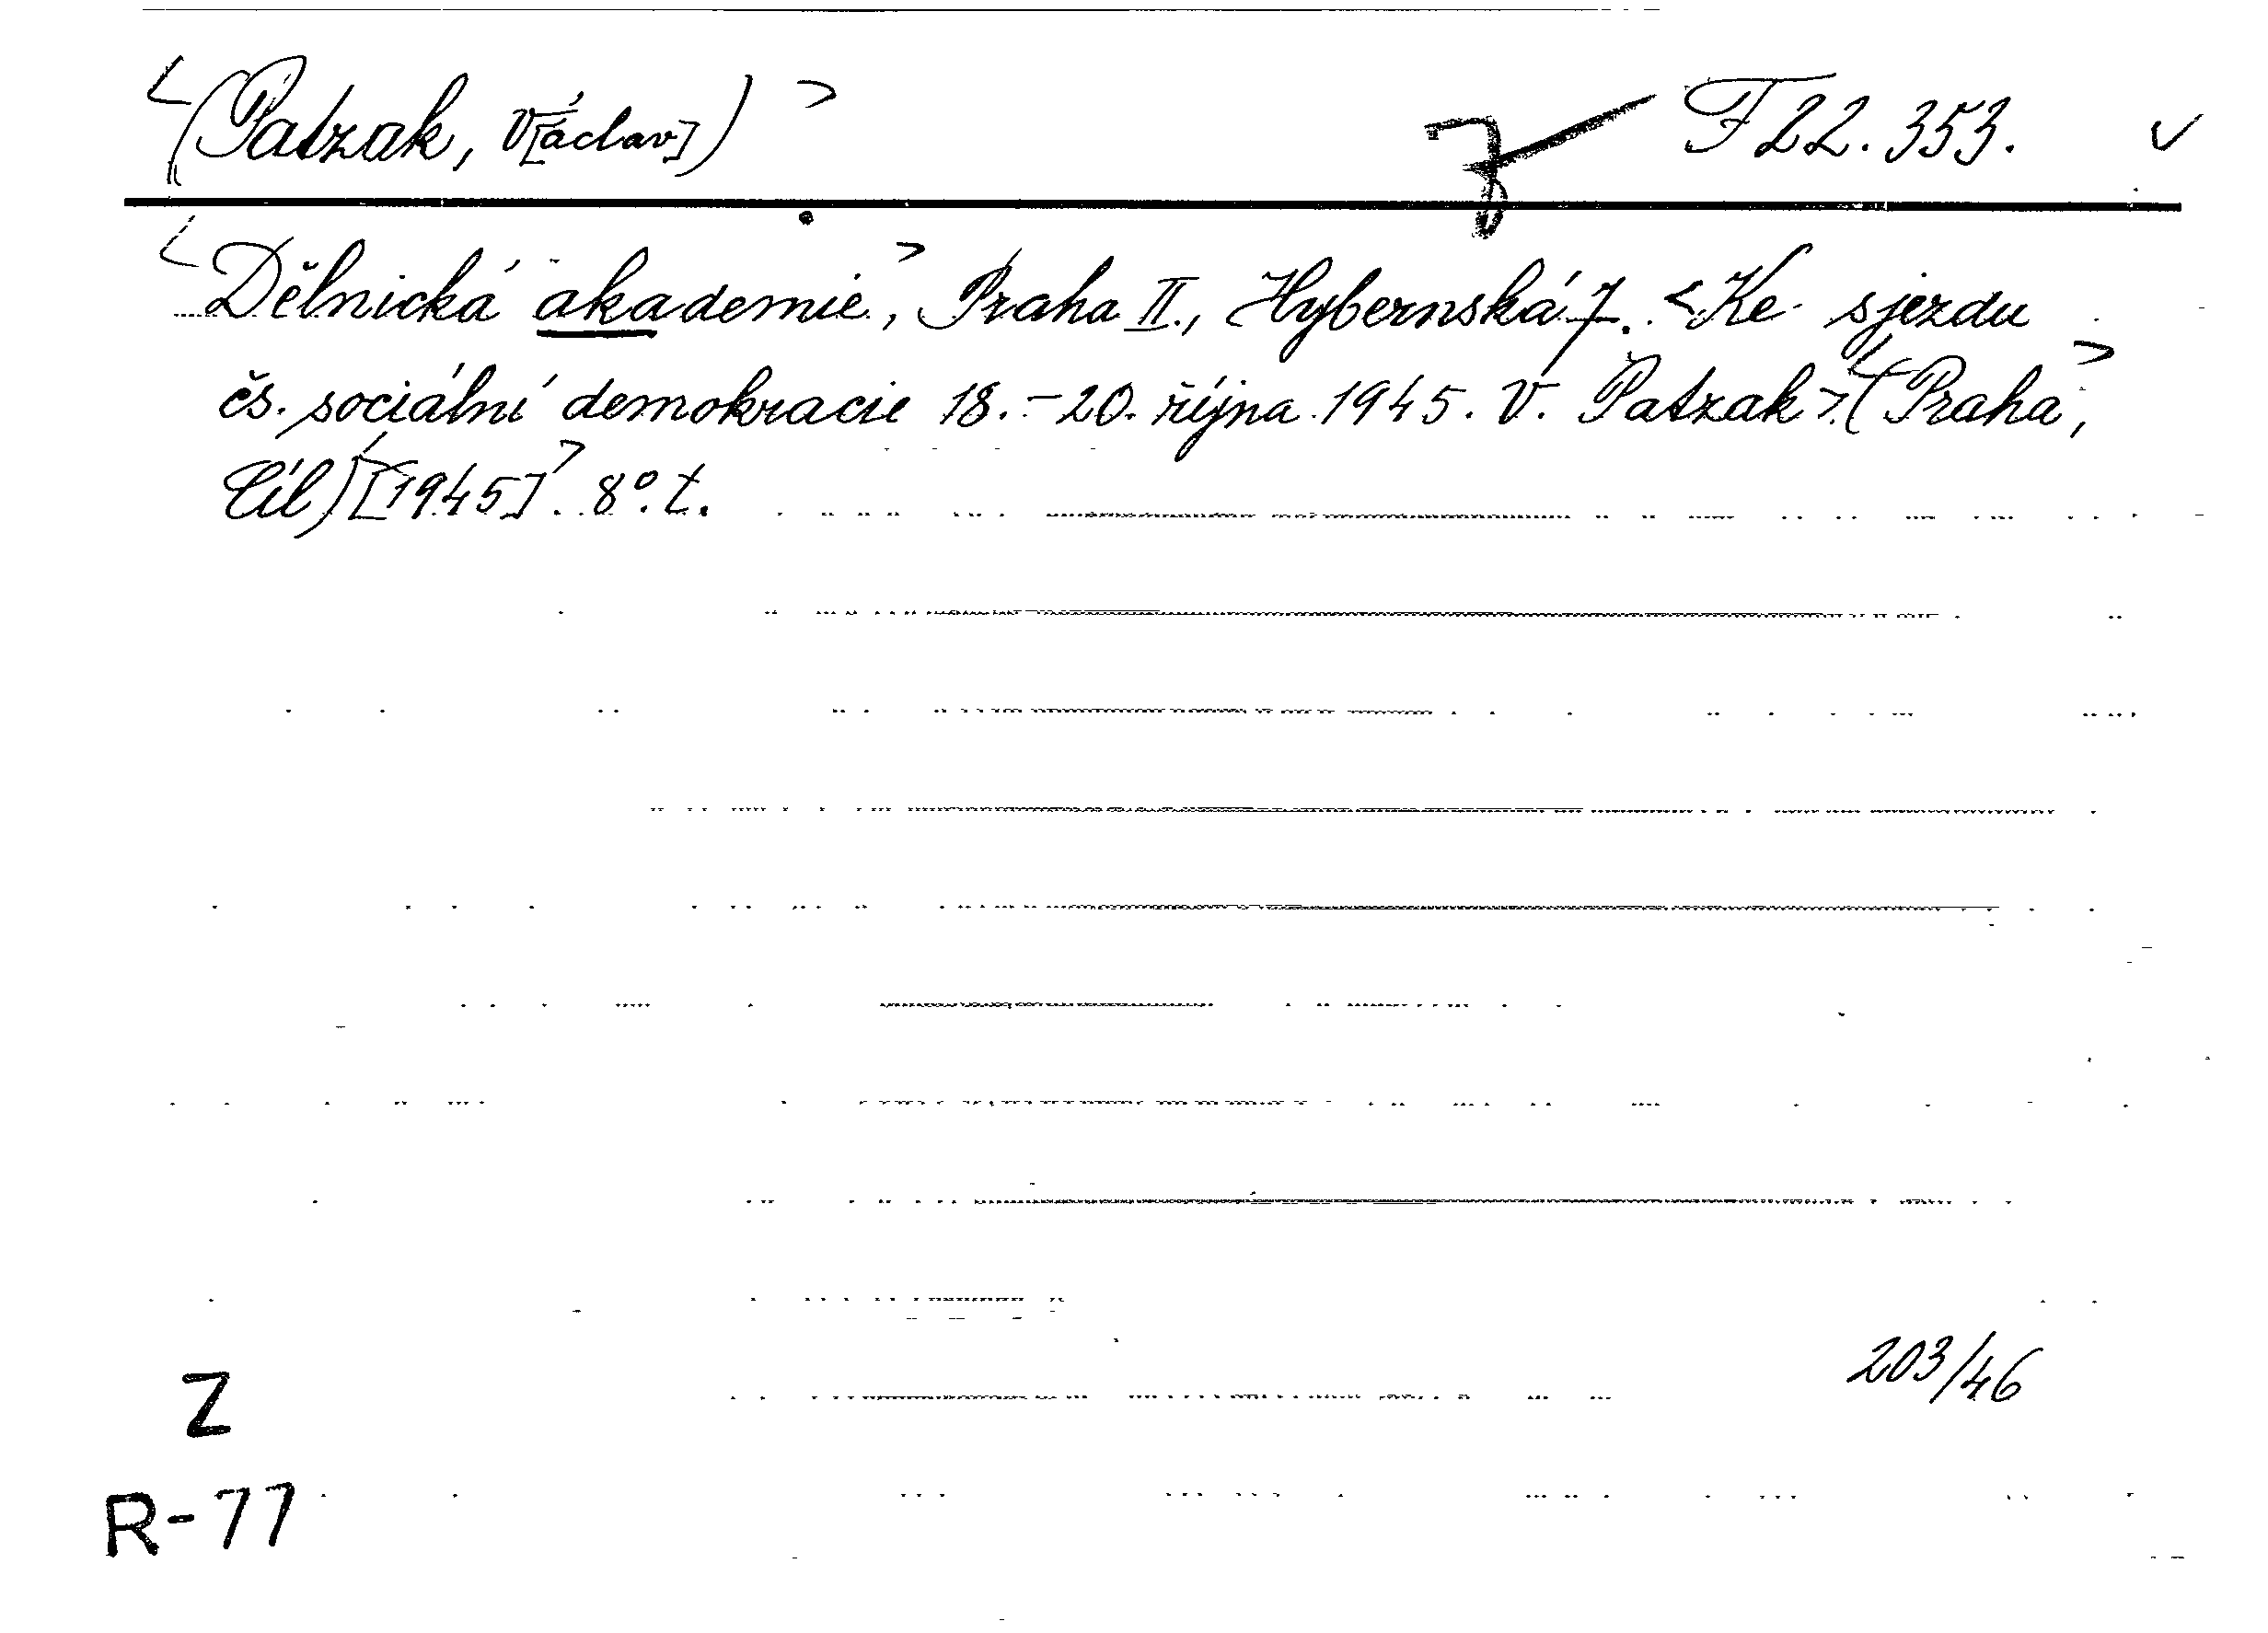 <(Patzak, V[áclav])> z F 22.353. ✓
<Dělnická akademie>, Praha II., Hybernská 7. <Ke sjezdu
čs. sociální demokracie 18.–20. října 1945. V. Patzak>. (<Praha>,
Cíl) <[1945]>. 8°. t.
203/46
Z
R-77